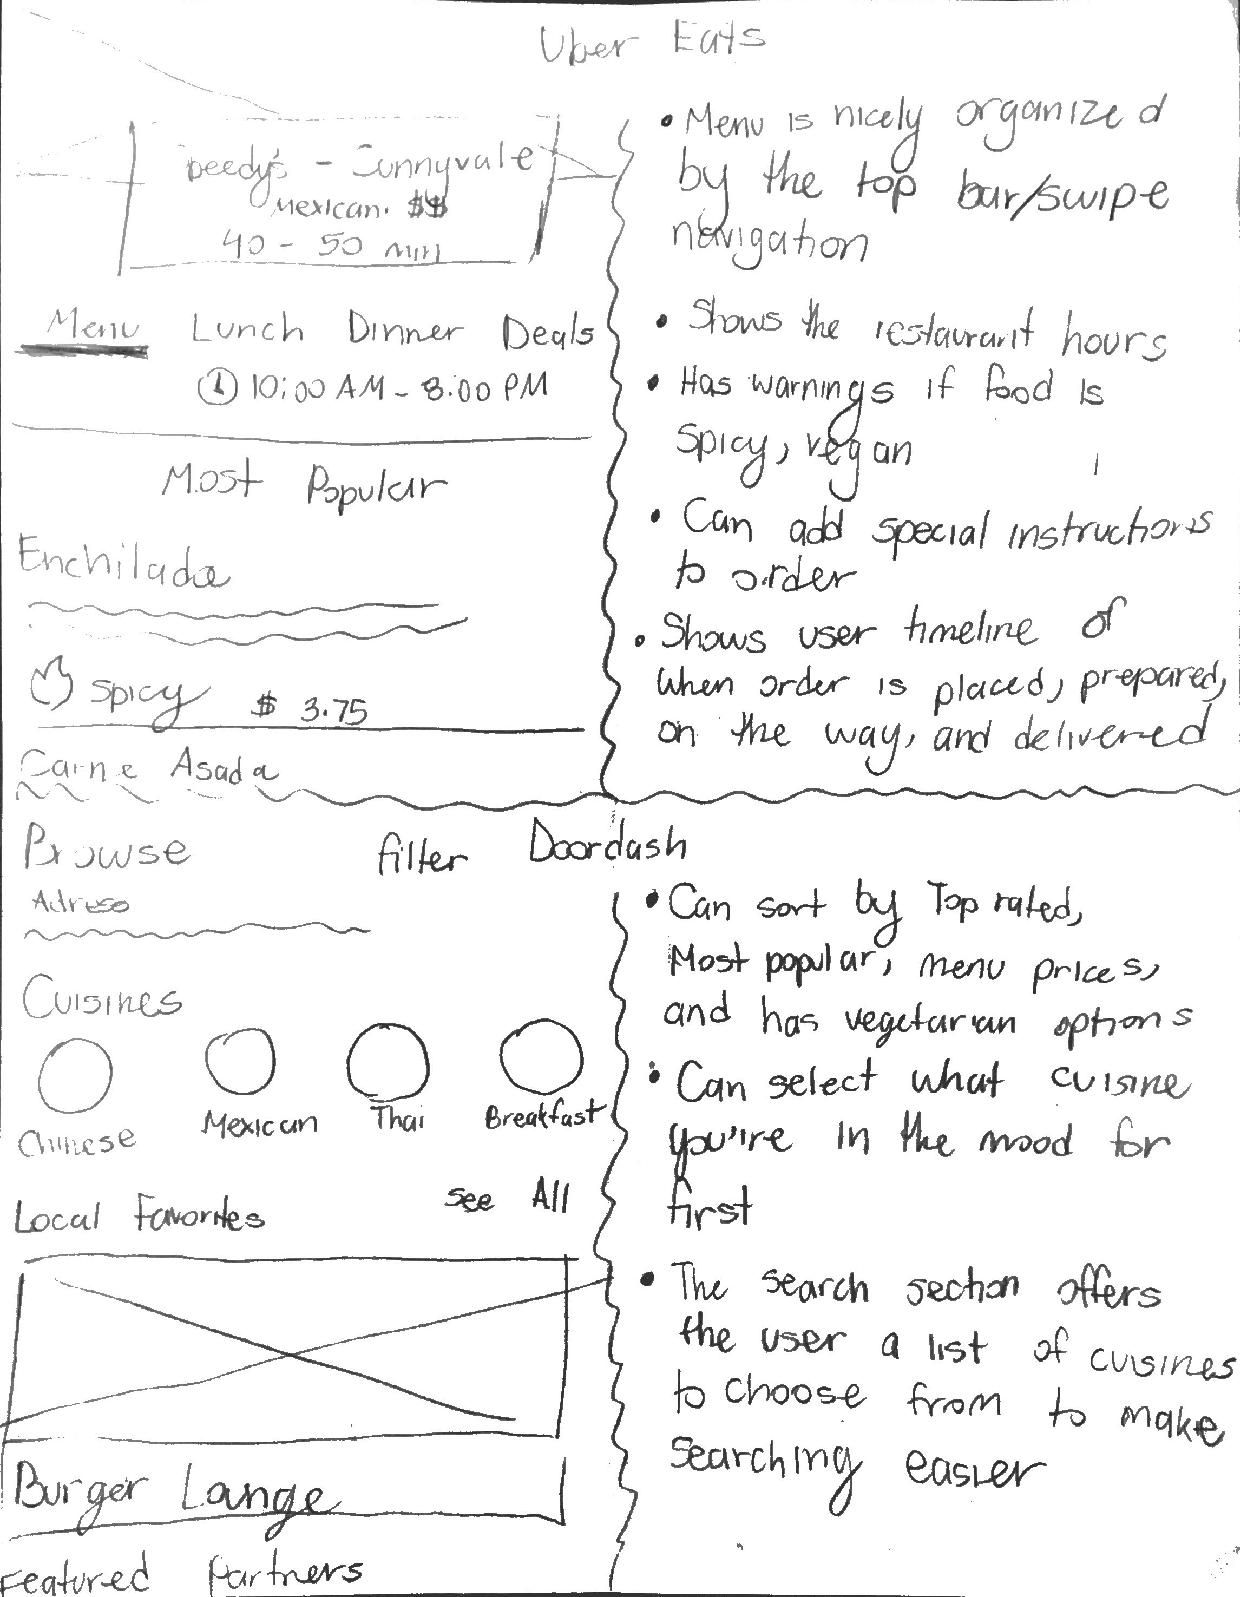 Uber Eats
peedy's - Sunnyvale
Mexican. $$
40 - 50 min
Menu Lunch Dinner Deals
10:00 AM - 8:00 PM
Most Popular
Enchilada
Spicy $ 3.75
Carne Asada
• Menu is nicely organized
by the top bar/swipe
navigation
• Shows the restaurant hours
• Has warnings if food is
spicy, vegan
• Can add special instructions
to order
• Shows user timeline of
when order is placed, prepared,
on the way, and delivered
Doordash
Browse filter
Adress
Cuisines
Chinese Mexican Thai Breakfast
Local Favorites See All
Burger Lange
Featured Partners
• Can sort by Top rated,
Most popular, menu prices,
and has vegetarian options
• Can select what cuisine
you're in the mood for
first
• The search section offers
the user a list of cuisines
to choose from to make
searching easier